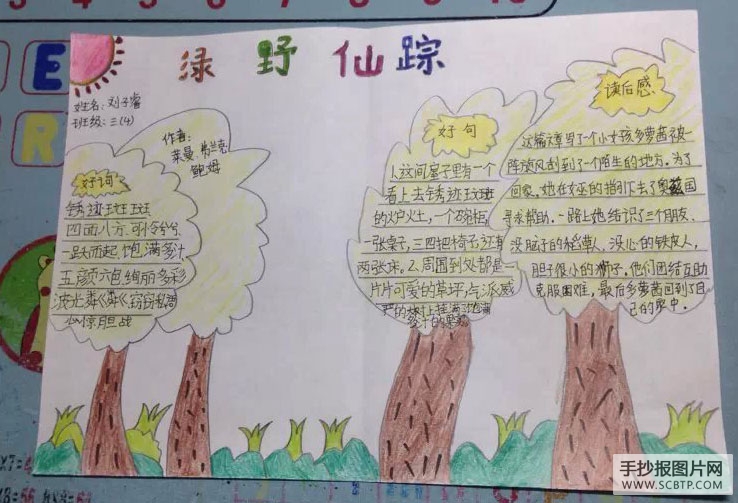 绿野仙踪
姓名：刘子睿
班级：三(4)
作者：
莱曼·弗兰克·
鲍姆
好词
锈迹斑斑
四面八方、可怜兮兮
一跃而起、饱满多汁
五颜六色、绚丽多彩
波光粼粼、窃窃私语
心惊胆战
好句
1.这间窟子里有一个
看上去锈迹斑斑
的炉火灶，一个碗柜，
一张桌子，三四把椅子，还有
两张床。2.周围到处都是一
片片可爱的草坪，
的树上挂满了饱满
多汁的果
读后感
这篇文章写了一个小女孩多萝茜被一
阵旋风刮到了一个陌生的地方。为了
回家，她在女巫的指引下去了奥兹国
寻求帮助。一路上她结识了三个朋友、
没脑子的稻草人、没心的铁皮人，
胆子很小的狮子，他们团结互助
克服困难，最后多萝茜回到了自
己的家中。
E
R
手抄报图片网
WWW.SCBTP.COM